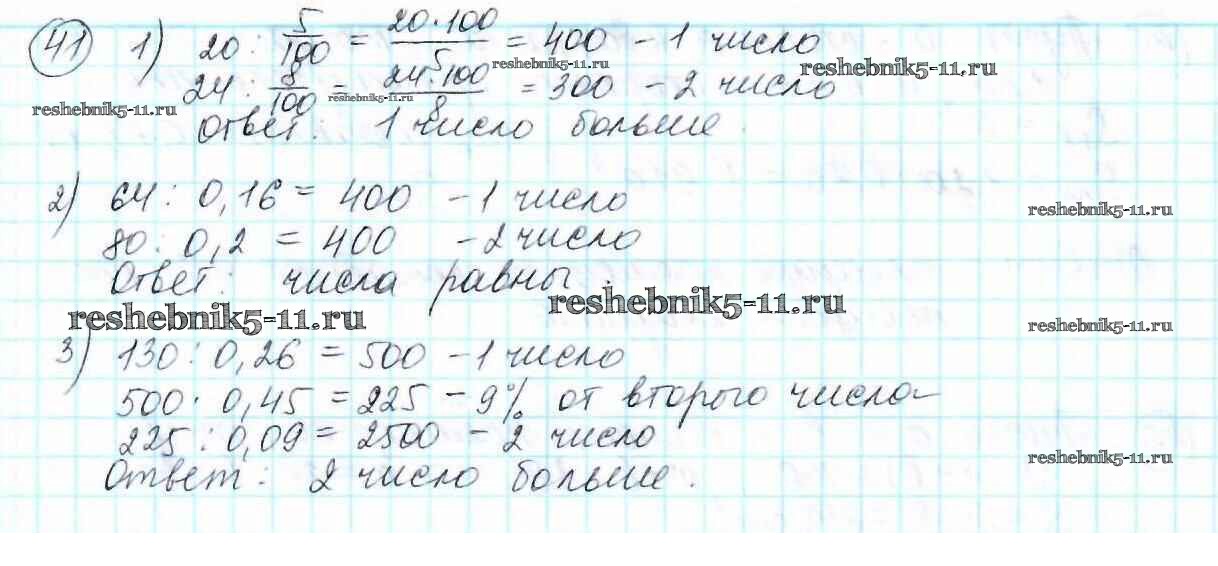 41 1) 20 : 5/100 = 20·100/5 = 400 – 1 число
reshebnik5-11.ru
reshebnik5-11.ru
24 : 8/100 = 24·100/8 = 300 – 2 число
reshebnik5-11.ru
reshebnik5-11.ru
Ответ: 1 число больше.
2) 64 : 0,16 = 400 – 1 число
reshebnik5-11.ru
80 : 0,2 = 400 – 2 число
Ответ: числа равны.
reshebnik5-11.ru
reshebnik5-11.ru
reshebnik5-11.ru
3) 130 : 0,26 = 500 – 1 число
500 · 0,45 = 225 – 9% от второго числа
225 : 0,09 = 2500 – 2 число
reshebnik5-11.ru
Ответ: 2 число больше.